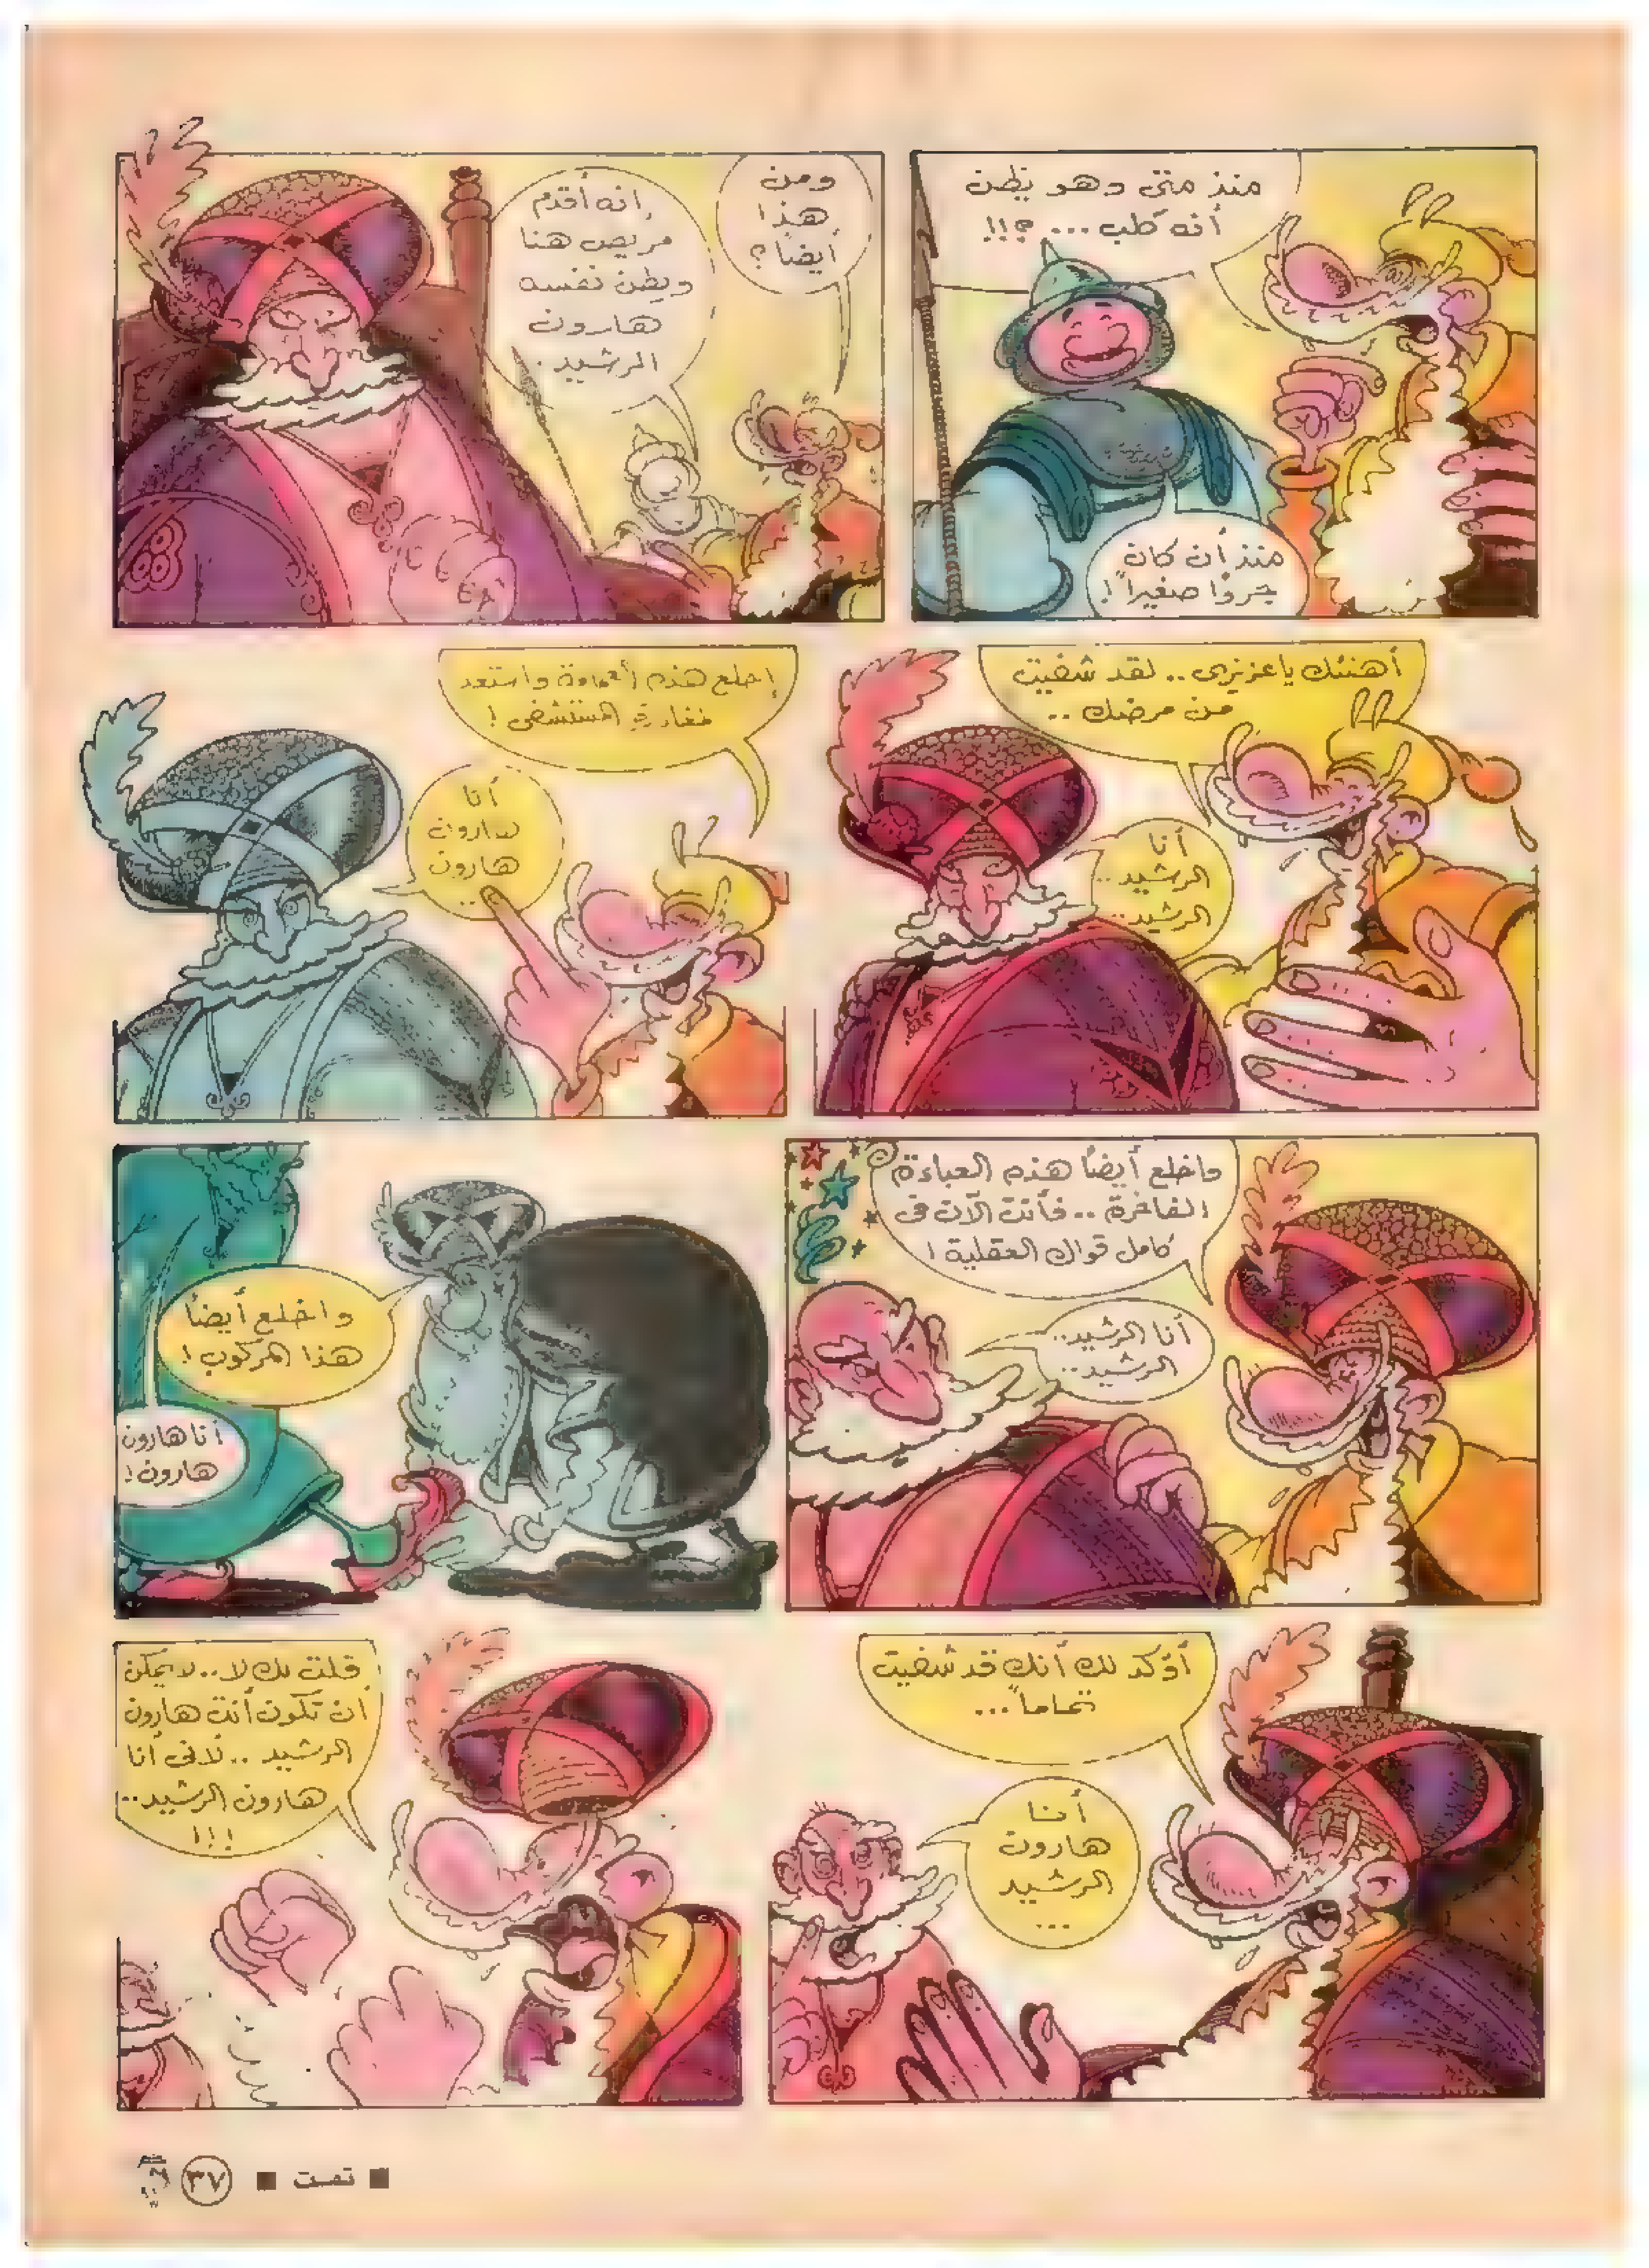 منذ متى وهو يظن
أنه كلب ... ؟!!
منذ أن كان
جروًا صغيراً !
ومن
هذا
أيضاً ؟
إنه أقدم
مريض هنا
ويظن نفسه
هارون
الرشيد .
أهنئك يا عزيزى .. لقد شفيت
من مرضك ..
أنا
الرشيد ..
الرشيد ..
إخلع هذه العمامة واستعد
لمغادرة المستشفى !
أنا
هارون
هارون
..
واخلع أيضاً هذه العباءة
الفاخرة .. فأنت الآن فى
كامل قواك العقلية !
أنا الرشيد ..
الرشيد ..
واخلع أيضاً
هذا المركوب !
أنا هارون
هارون !
أؤكد لك أنك قد شفيت
تماماً ...
أنا
هارون
الرشيد
...
قلت لك لا .. لا يمكن
ان تكون أنت هارون
الرشيد .. لأنى أنا
هارون الرشيد ..
!!!
تمت
٣٧